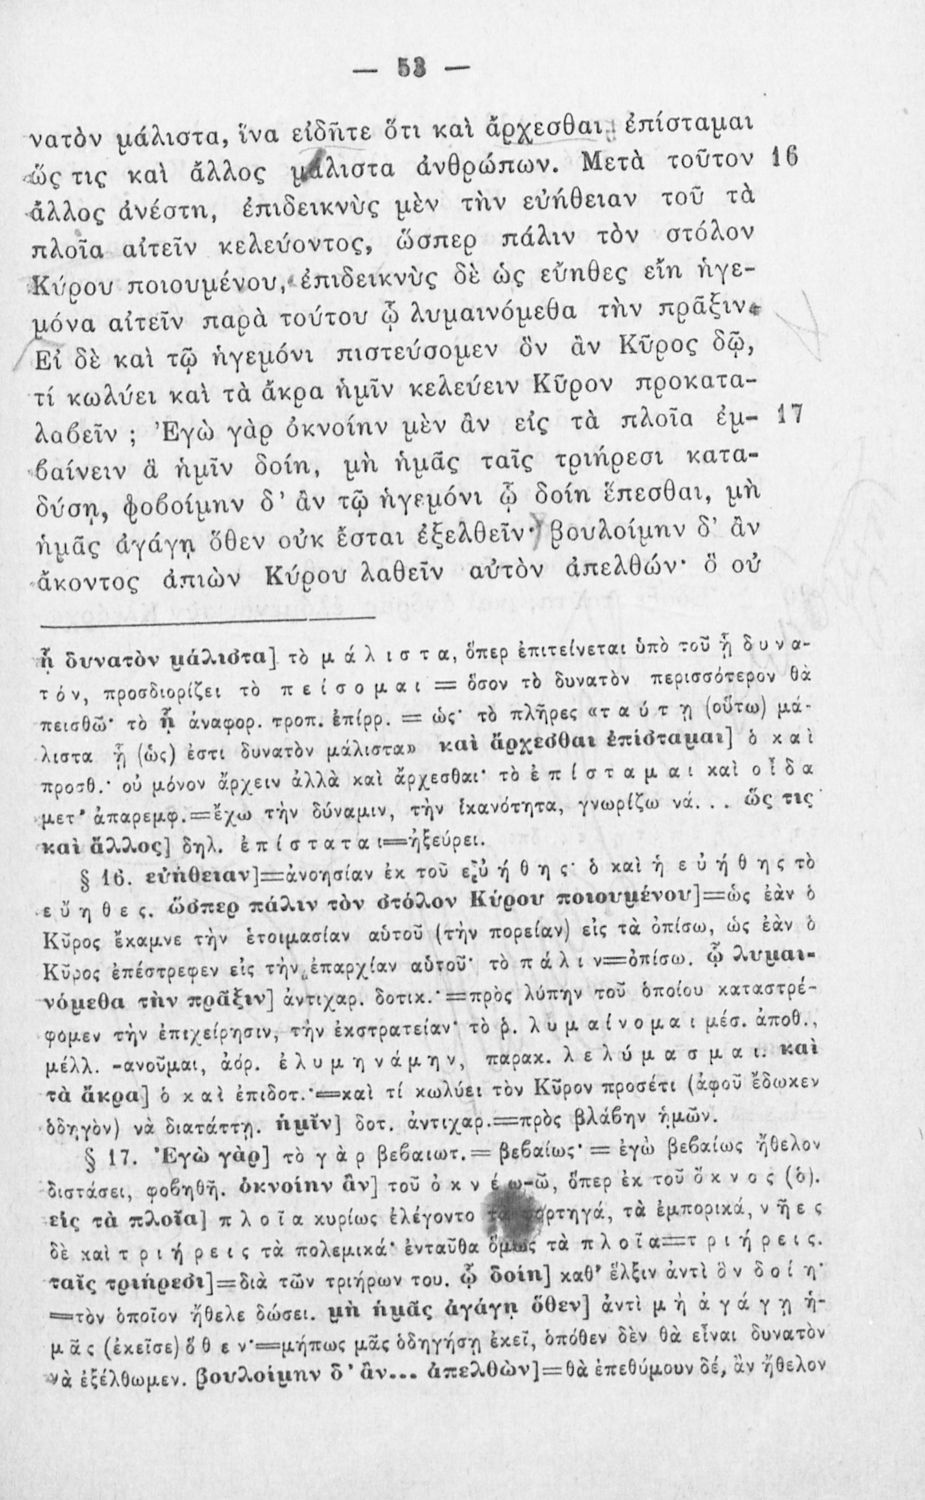 — 53 —
νατὸν μάλιστα, ἵνα εἰδῆτε ὅτι καὶ ἄρχεσθαι ἐπίσταμαι
ὥς τις καὶ ἄλλος μάλιστα ἀνθρώπων. Μετὰ τοῦτον 16
ἄλλος ἀνέστη, ἐπιδεικνὺς μὲν τὴν εὐήθειαν τοῦ τὰ
πλοῖα αἰτεῖν κελεύοντος, ὥσπερ πάλιν τὸν στόλον
Κύρου ποιουμένου, ἐπιδεικνὺς δὲ ὡς εὔηθες εἴη ἡγε-
μόνα αἰτεῖν παρὰ τούτου ᾧ λυμαινόμεθα τὴν πρᾶξιν.
Εἰ δὲ καὶ τῷ ἡγεμόνι πιστεύσομεν ὃν ἂν Κῦρος δῷ,
τί κωλύει καὶ τὰ ἄκρα ἡμῖν κελεύειν Κῦρον προκατα-
λαβεῖν ; Ἐγὼ γὰρ ὀκνοίην μὲν ἂν εἰς τὰ πλοῖα ἐμ- 17
βαίνειν ἃ ἡμῖν δοίη, μὴ ἡμᾶς ταῖς τριήρεσι κατα-
δύσῃ, φοβοίμην δ' ἂν τῷ ἡγεμόνι ᾧ δοίη ἕπεσθαι, μὴ
ἡμᾶς ἀγάγῃ ὅθεν οὐκ ἔσται ἐξελθεῖν· βουλοίμην δ' ἂν
ἄκοντος ἀπιὼν Κύρου λαθεῖν αὐτὸν ἀπελθών· ὃ οὐ
ᾗ δυνατὸν μάλιστα] τὸ μάλιστα, ὅπερ ἐπιτείνεται ὑπὸ τοῦ ᾗ δυνα-
τόν, προσδιορίζει τὸ πείσομαι = ὅσον τὸ δυνατὸν περισσότερον θὰ
πεισθῶ· τὸ ᾗ ἀναφορ. τροπ. ἐπίρρ. = ὡς· τὸ πλῆρες «ταύτῃ (οὕτω) μά-
λιστα ᾗ (ὡς) ἐστι δυνατὸν μάλιστα» καὶ ἄρχεσθαι ἐπίσταμαι] ὁ καὶ
προσθ.· οὐ μόνον ἄρχειν ἀλλὰ καὶ ἄρχεσθαι· τὸ ἐπίσταμαι καὶ οἶδα
μετ' ἀπαρεμφ.=ἔχω τὴν δύναμιν, τὴν ἱκανότητα, γνωρίζω νά... ὥς τις
καὶ ἄλλος] δηλ. ἐπίσταται=ἠξεύρει.
§ 16. εὐήθειαν]=ἀνοησίαν ἐκ τοῦ εὐήθης· ὁ καὶ ἡ εὐήθης τὸ
εὔηθες. ὥσπερ πάλιν τὸν στόλον Κύρου ποιουμένου]=ὡς ἐὰν ὁ
Κῦρος ἔκαμνε τὴν ἑτοιμασίαν αὑτοῦ (τὴν πορείαν) εἰς τὰ ὀπίσω, ὡς ἐὰν ὁ
Κῦρος ἐπέστρεφεν εἰς τὴν ἐπαρχίαν αὑτοῦ· τὸ πάλιν=ὀπίσω. ᾧ λυμαι-
νόμεθα τὴν πρᾶξιν] ἀντιχαρ. δοτικ.·=πρὸς λύπην τοῦ ὁποίου καταστρέ-
φομεν τὴν ἐπιχείρησιν, τὴν ἐκστρατείαν· τὸ ῥ. λυμαίνομαι μέσ. ἀποθ.,
μέλλ. -ανοῦμαι, ἀόρ. ἐλυμηνάμην, παρακ. λελύμασμαι. καὶ
τὰ ἄκρα] ὁ καὶ ἐπιδοτ.·=καὶ τί κωλύει τὸν Κῦρον προσέτι (ἀφοῦ ἔδωκεν
ὁδηγὸν) νὰ διατάττῃ. ἡμῖν] δοτ. ἀντιχαρ.=πρὸς βλάβην ἡμῶν.
§ 17. Ἐγὼ γὰρ] τὸ γὰρ βεβαιωτ.= βεβαίως· = ἐγὼ βεβαίως ἤθελον
διστάσει, φοβηθῆ. ὀκνοίην ἂν] τοῦ ὀκνέω-ῶ, ὅπερ ἐκ τοῦ ὄκνος (ὁ).
εἰς τὰ πλοῖα] πλοῖα κυρίως ἐλέγοντο τὰ φορτηγά, τὰ ἐμπορικά, νῆες
δὲ καὶ τριήρεις τὰ πολεμικά· ἐνταῦθα ὅμως τὰ πλοῖα=τριήρεις.
ταῖς τριήρεσι]=διὰ τῶν τριήρων του. ᾧ δοίη] καθ' ἕλξιν ἀντὶ ὃν δοίη·
=τὸν ὁποῖον ἤθελε δώσει. μὴ ἡμᾶς ἀγάγῃ ὅθεν] ἀντὶ μὴ ἀγάγῃ ἡ-
μᾶς (ἐκεῖσε) ὅθεν·=μήπως μᾶς ὁδηγήσῃ ἐκεῖ, ὁπόθεν δὲν θὰ εἶναι δυνατὸν
νὰ ἐξέλθωμεν. βουλοίμην δ' ἂν... ἀπελθὼν]=θὰ ἐπεθύμουν δέ, ἂν ἤθελον